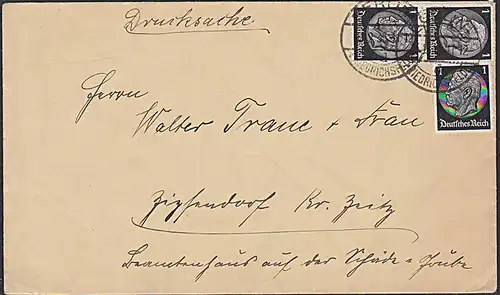 Drucksache
1 1
Deutsches Reich Deutsches Reich
1 1
Deutsches Reich
Herrn
Walter Traue + Frau
Zipsendorf Kr. Zeitz
Beamtenhaus auf der Schäde = Grube